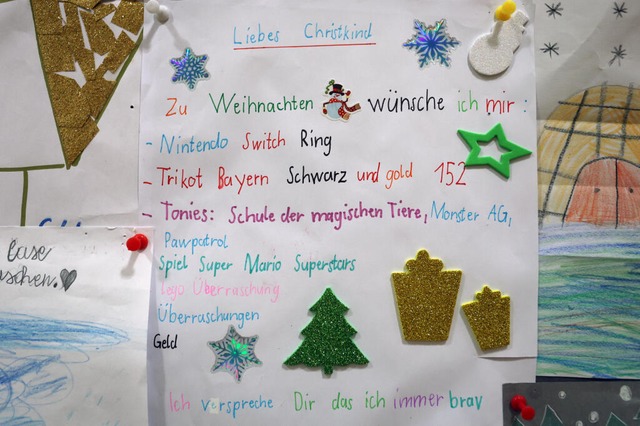 Liebes Christkind
Zu Weihnachten wünsche ich mir :
- Nintendo Switch Ring
- Trikot Bayern Schwarz und gold 152
- Tonies: Schule der magischen Tiere, Monster AG,
Pawpatrol
Spiel Super Mario Superstars
Lego Überraschung
Überraschungen
Geld
Ich verspreche Dir das ich immer brav